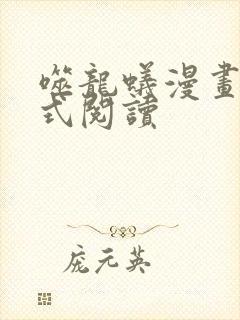 噬龍蟻漫畫
式閱讀
庞元英